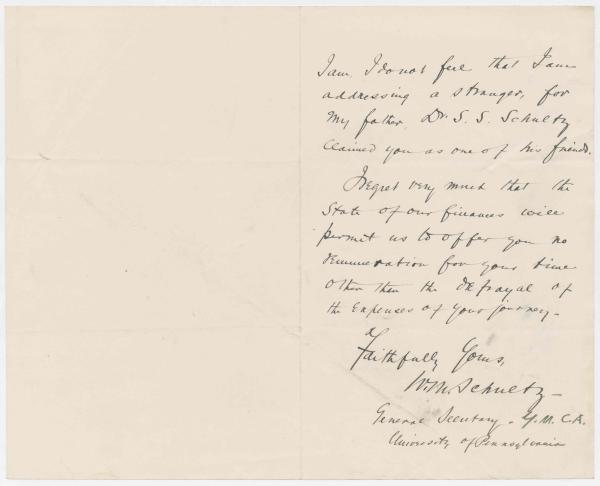 I am, I do not feel that I am
addressing a stranger, for
my father, Dr. S. S. Schultz
claimed you as one of his friends.
I regret very much that the
State of our finances will
permit us to offer you no
remuneration for your time
other than the defrayal of
the expenses of your journey.
Faithfully Yours,
W. M. Schultz
General Secretary. Y.M.C.A.
University of Pennsylvania